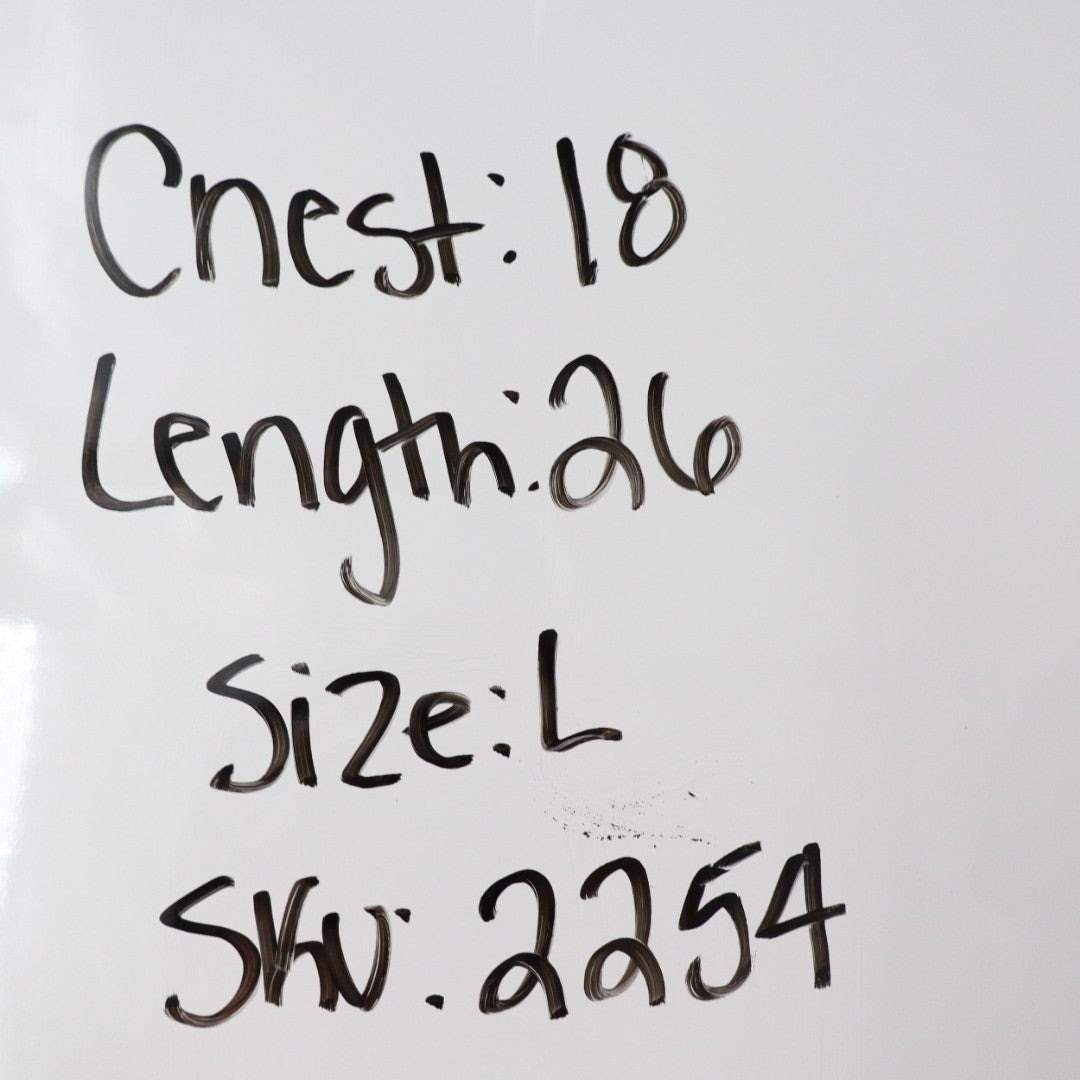 Chest: 18
Length: 26
Size: L
SKU: 2254